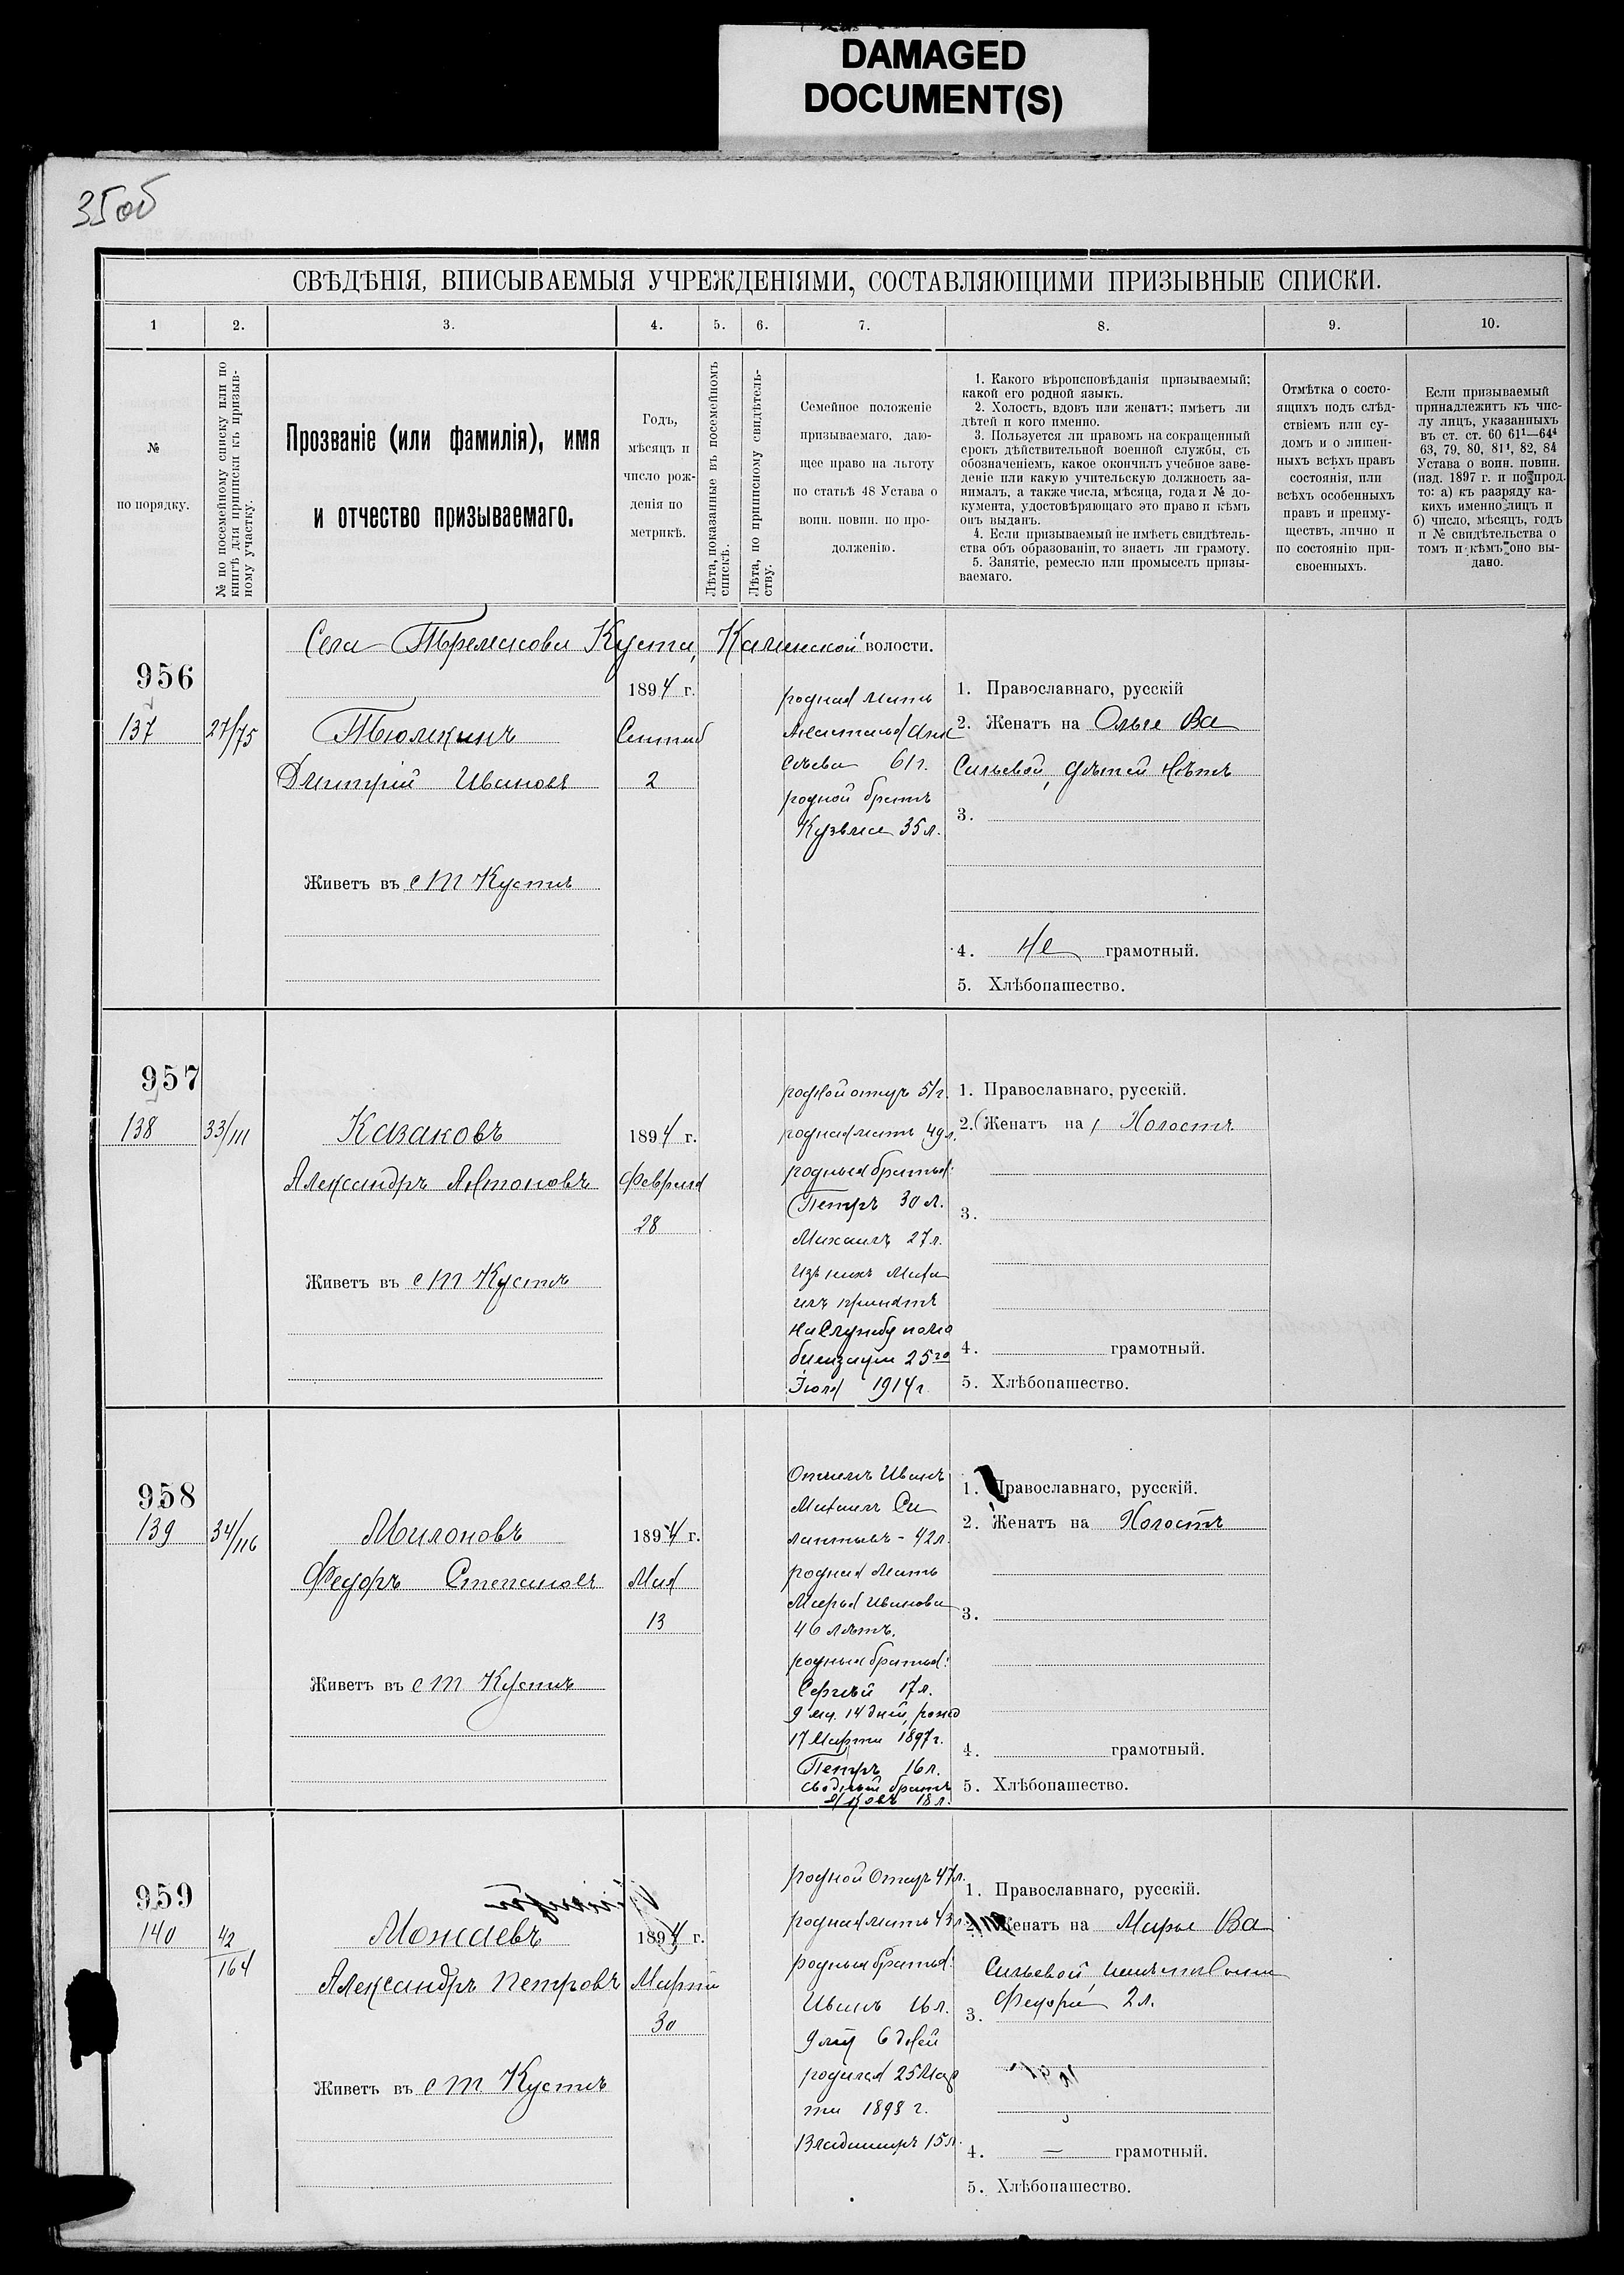 DAMAGED
DOCUMENT(S)
35 об
СВѢДѢНІЯ, ВПИСЫВАЕМЫЯ УЧРЕЖДЕНІЯМИ, СОСТАВЛЯЮЩИМИ ПРИЗЫВНЫЕ СПИСКИ.
1 2. 3. 4. 5. 6. 7. 8. 9. 10.
№
по порядку.
№ по посемейному списку или по
книгѣ для приписки къ призыв-
ному участку.
Прозваніе (или фамилія), имя
и отчество призываемаго.
Годъ,
мѣсяцъ и
число рож-
денія по
метрикѣ.
Лѣта, показанные въ посемейномъ
спискѣ.
Лѣта, по приписному свидѣтель-
ству.
Семейное положеніе
призываемаго, даю-
щее право на льготу
по статьѣ 48 Устава о
воин. повин. по про-
долженію.
1. Какого вѣроисповѣданія призываемый;
какой его родной языкъ.
2. Холостъ, вдовъ или женатъ; имѣетъ ли
дѣтей и кого именно.
3. Пользуется ли правомъ на сокращенный
срокъ дѣйствительной военной службы, съ
обозначеніемъ, какое окончилъ учебное заве-
деніе или какую учительскую должность за-
нималъ, а также числа, мѣсяца, года и № до-
кумента, удостовѣряющаго это право и кѣмъ
онъ выданъ.
4. Если призываемый не имѣетъ свидѣтель-
ства объ образованіи, то знаетъ ли грамоту.
5. Занятіе, ремесло или промыселъ призы-
ваемаго.
Отмѣтка о состо-
ящихъ подъ слѣд-
ствіемъ или су-
домъ и о лишен-
ныхъ всѣхъ правъ
состоянія, или
всѣхъ особенныхъ
правъ и преиму-
ществъ, лично и
по состоянію при-
своенныхъ.
Если призываемый
принадлежитъ къ чис-
лу лицъ, указанныхъ
въ ст. ст. 60 61¹—64⁴
63, 79, 80, 81¹, 82, 84
Устава о воин. повин.
(изд. 1897 г. и по прод.
то: а) къ разряду ка-
кихъ именно лицъ и
б) число, мѣсяцъ, годъ
и № свидѣтельства о
томъ и кѣмъ оно вы-
дано.
Села Куста, Качинской волости.
956
137
27/75
Тюлькинъ
Дмитрій Ивановъ
Живетъ въ с Т Кустѣ
1894 г.
2
родная мать
61 г.
родной братъ
Кузьма 35 л.
1. Православнаго, русскій
2. Женатъ на Ольге Ва
сильевой, дѣтей нѣтъ
3.
4. не грамотный.
5. Хлѣбопашество.
957
138
33/111
Казаковъ
Александръ Антоновъ
Живетъ въ с Т Кустѣ
1894 г.
Февраля
28
родной отецъ 51 г.
родная мать 49 л.
родныя братья:
Петръ 30 л.
Михаилъ 27 л.
изъ нихъ Миха
илъ принятъ
на службу по мо
билизаціи 25го
Іюля 1914 г.
1. Православнаго, русскій.
2. (Женатъ на) Холостъ
3.
4. грамотный.
5. Хлѣбопашество.
958
139
34/116
Милоновъ
Федоръ Степановъ
Живетъ въ с Т Кустѣ
1894 г.
Мая
13
Отчимъ
Михаилъ Си
лантьевъ - 42 л.
родная мать
Марья Иванова
46 лѣтъ.
родныя братья:
Сергѣй 17 л.
9 мц. 14 дней, ро
17 Марта 1897 г.
Петръ 16 л.
сводный братъ
Яковъ 18 л.
1. Православнаго, русскій.
2. Женатъ на Холостъ
3.
4. грамотный.
5. Хлѣбопашество.
959
140
42/164
Можаевъ
Александръ Петровъ
Живетъ въ с Т Кустѣ
1894 г.
Марта
30
родной отецъ 47 л.
родная мать 43 л.
родныя братья:
Иванъ 16 л.
9 мц 6 дней
родился 25 Мар
та 1898 г.
Владимиръ 15 л.
1. Православнаго, русскій.
2. Женатъ на Марье Ва
сильевой, имѣетъ сына
3. Федора 2 л.
4. — грамотный.
5. Хлѣбопашество.